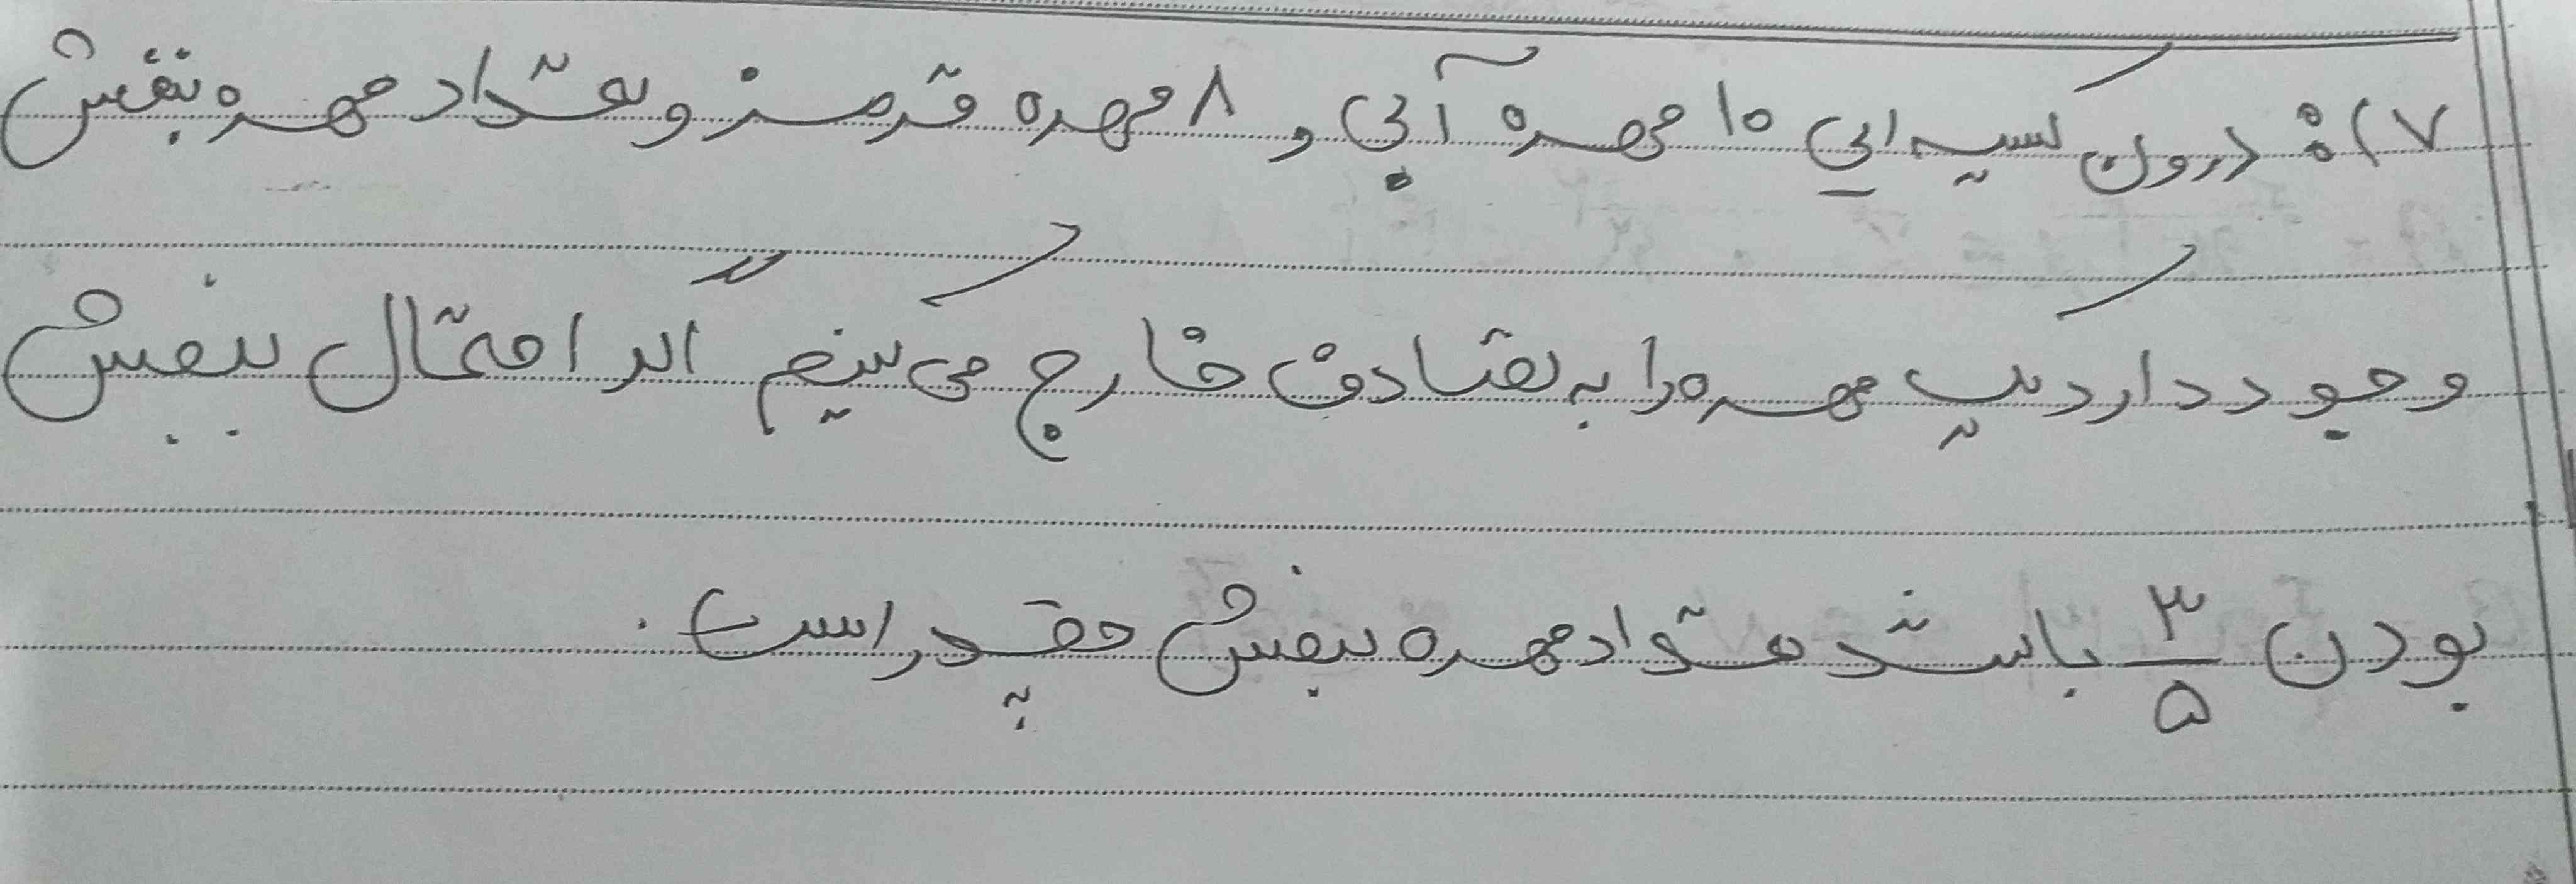 ۷): درون کیسه ایی ۱۰ مهره آبی و ۸ مهره قرمز و تعداد مهره بنفش
وجود دارد یک مهره را به تصادف خارج می کنیم اگر احتمال بنفش
بودن ۳/۵ باشد تعداد مهره بنفش چقدر است.